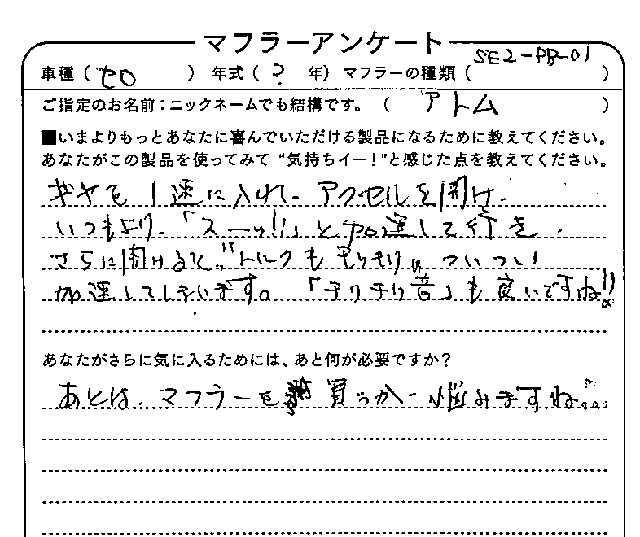 マフラーアンケート
車種 ( セロ ) 年式 ( ? 年) マフラーの種類 ( SE2-PB-01 )
ご指定のお名前:ニックネームでも結構です。 ( アトム )
■いまよりもっとあなたに喜んでいただける製品になるために教えてください。
あなたがこの製品を使ってみて“気持ちイー!"と感じた点を教えてください。
ギヤを1速に入れて、アクセルを開け、
いつもより、「スーッ!!」と加速して行き、
さらに開けると、"トルクもモリモリ"ついつい
加速してしまいます。「チリチリ音」も良いですね!!
あなたがさらに気に入るためには、あと何が必要ですか?
あとは、マフラーを 買うか、悩みますね…